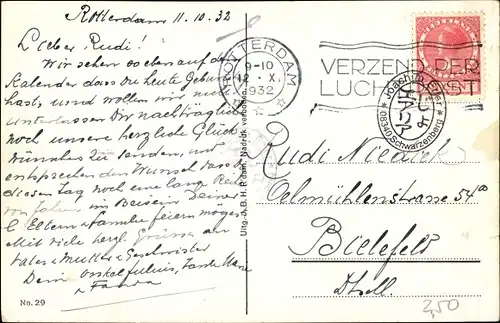 Rotterdam 11.10.32
Lieber Rudi!
Wir sehen soeben auf dem
Kalender dass Du heute Geburtstag
hast, und wollen wir nicht
unterlassen Dir nachträglich
noch unsere herzliche Glück-
wünsche zu senden, und
entsprechen den Wunsch dass Du
diesen Tag noch eine lange Reihe
von Jahren im Beisein Deiner
l. Eltern & Familie feiern mögest
Mit viele herzl. Grüsse an
Vater & Mutter & Geschwister
Dein Onkel Julius, Tante
No. 29
Uitg. J. B. H. R'dam. Nadruk verboden.
ROTTERDAM
9-10
12.X.
1932
VERZEND PER
LUCHTPOST
NEDERLAND
Joachim Erler
08340 Schwarzenberg
Rudi
Oelmühlenstrasse 54a
Bielefeld
Dtschl.
2,50